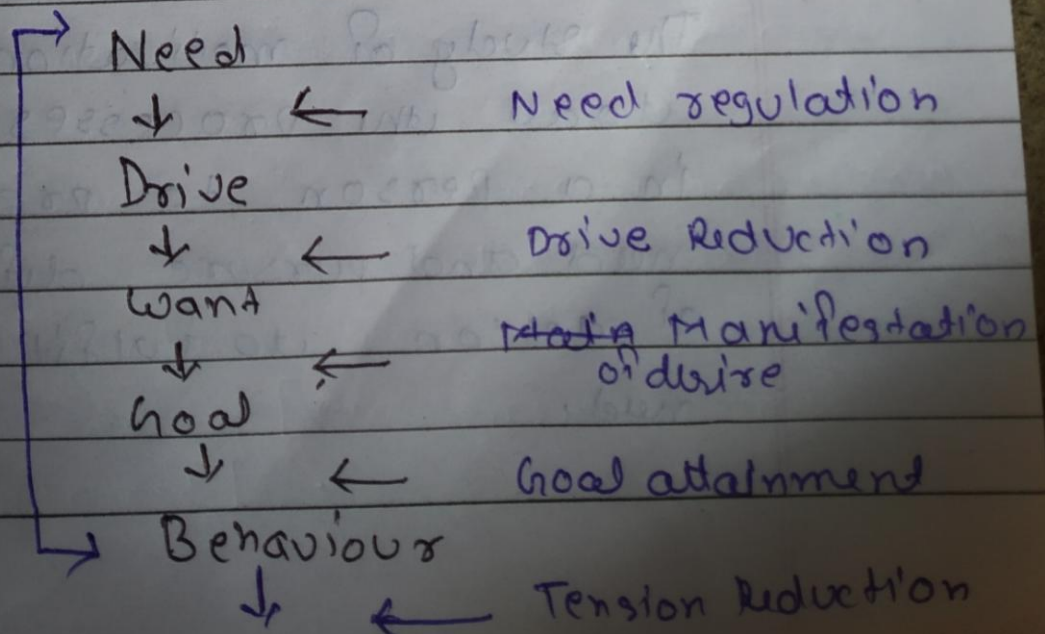 Need
↓ ← Need regulation
Drive
↓ ← Drive Reduction
Want
↓ ← Manifestation
of desire
Goal
↓ ← Goal attainment
Behaviour
↓ ← Tension Reduction